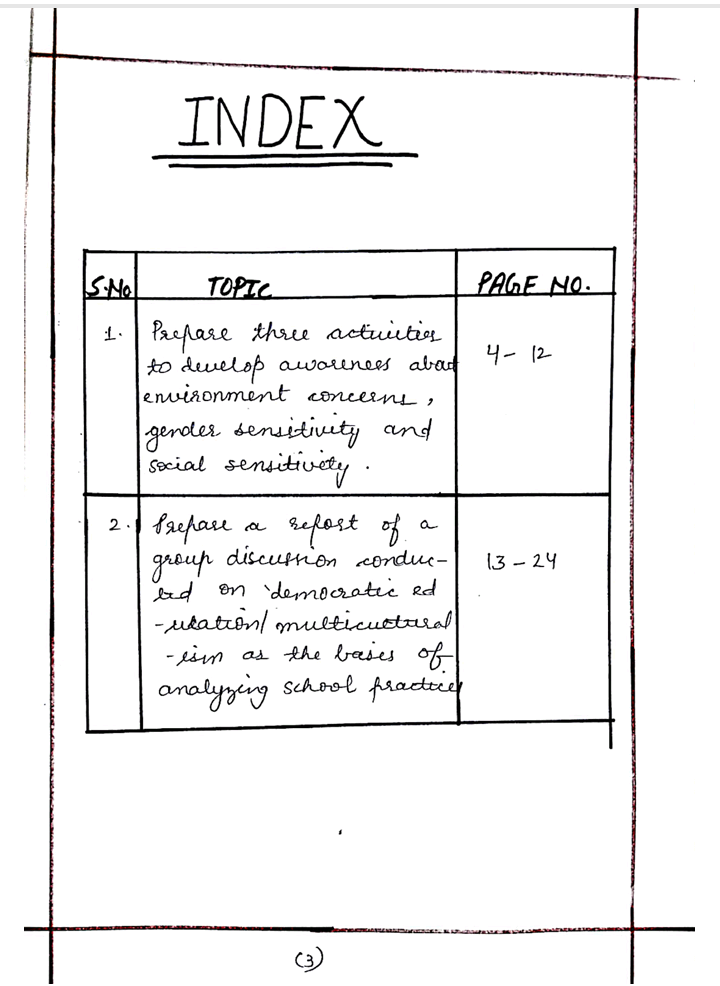 INDEX
S.No TOPIC PAGE NO.
1. Prepare three activities
to develop awareness about
environment concerns,
gender sensitivity and
social sensitivity.
4 - 12
2. Prepare a report of a
group discussion conduc-
ted on 'democratic ed
-ucation/ multicultural
-ism as the bases of
analyzing school practices
13 - 24
(3)